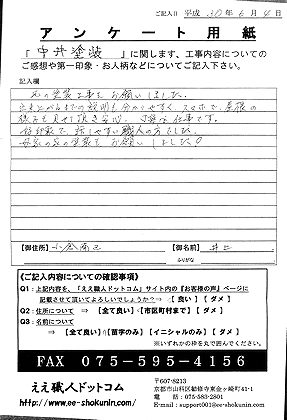 ご記入日 平成 30年 6月 4日
アンケート用紙
「中井塗装」に関します、工事内容についての
ご感想や第一印象・お人柄などについてご記入下さい。
記入欄
の塗装工事をお願いしました。
出来上がるまでの説明も分かりやすく、スマホで、屋根の
様子も見せて頂き安心、丁寧な仕事です。
好印象で、話しやすい職人の方でした。
の塗装もお願いしました!
【御住所】 小倉南区
【御名前】
ふりがな
《ご記入内容についての確認事項》
Q1：上記内容を、「ええ職人ドットコム」サイト内の『お客様の声』ページに
記載させて頂いてよろしいでしょうか?⇒ 【良い】 【ダメ】
Q2：御住所について ⇒ 【全て良い】【市区町村まで】【ダメ】
Q3：名前について
⇒ 【全て良い】【苗字のみ】【イニシャルのみ】【ダメ】
※いずれかの枠を丸で囲んでください。
FAX 075-595-4156
ええ職人ドットコム
http://www.ee-shokunin.com/
〒607-8213
京都市山科区勧修寺東金ヶ崎町41-1
電話:075-583-2801
E-mail:support001@ee-shokunin.com